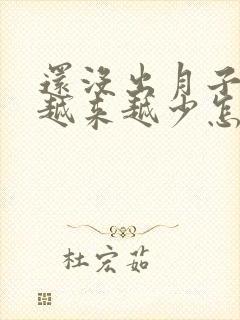 還沒出月子
越來越少怎
杜宏茹